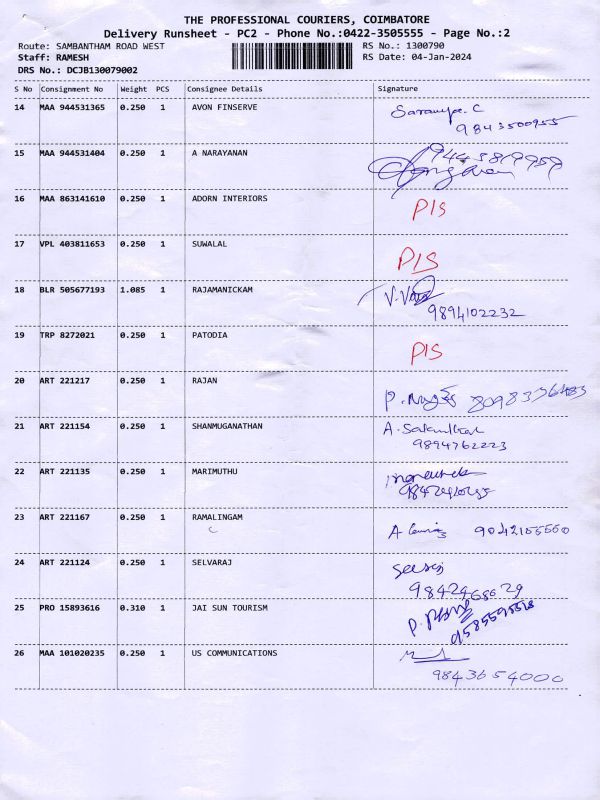 THE PROFESSIONAL COURIERS, COIMBATORE
Delivery Runsheet - PC2 - Phone No.:0422-3505555 - Page No.:2
Route: SAMBANTHAM ROAD WEST RS No.: 1300790
Staff: RAMESH RS Date: 04-Jan-2024
DRS No.: DCJB130079002
S No Consignment No Weight PCS Consignee Details Signature
14 MAA 944531365 0.250 1 AVON FINSERVE
9843500955
15 MAA 944531404 0.250 1 A NARAYANAN
16 MAA 863141610 0.250 1 ADORN INTERIORS PIS
17 VPL 403811653 0.250 1 SUWALAL PIS
18 BLR 505677193 1.085 1 RAJAMANICKAM
9894102232
19 TRP 8272021 0.250 1 PATODIA PIS
20 ART 221217 0.250 1 RAJAN
21 ART 221154 0.250 1 SHANMUGANATHAN
9894762223
22 ART 221135 0.250 1 MARIMUTHU
23 ART 221167 0.250 1 RAMALINGAM
24 ART 221124 0.250 1 SELVARAJ
25 PRO 15893616 0.310 1 JAI SUN TOURISM
26 MAA 101020235 0.250 1 US COMMUNICATIONS
9843654000